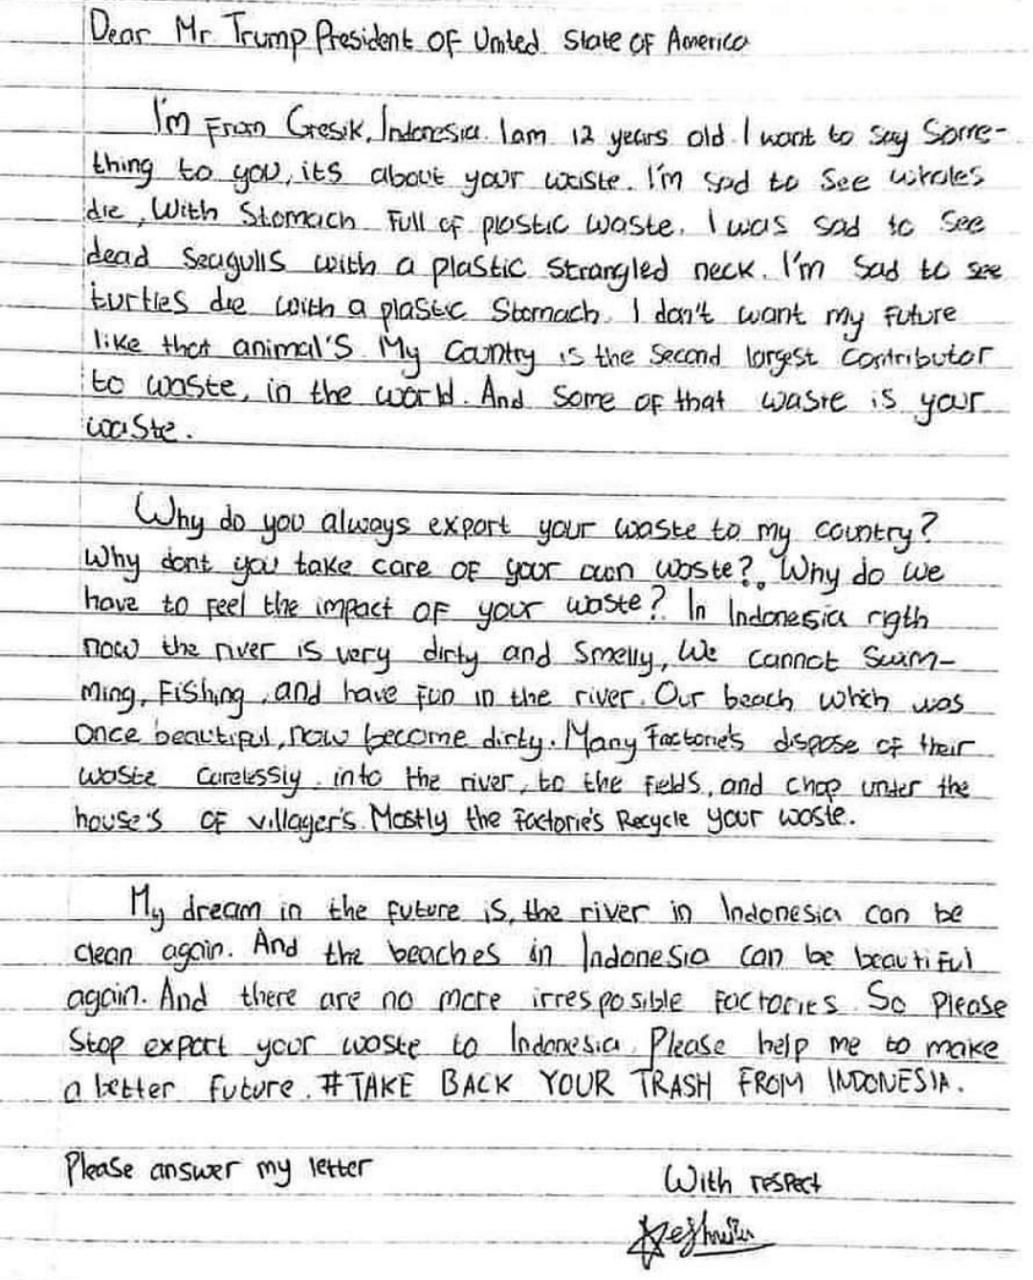 Dear Mr Trump President OF United State OF America
I'm From Gresik, Indonesia. I am 12 years old. I want to say Some-
thing to you, its about your waste. I'm sad to see whales
die, With Stomach Full of plastic waste. I was sad to see
dead Seagulls with a plastic strangled neck. I'm sad to see
turtles die with a plastic Stomach. I don't want my Future
like that animal's. My Country is the second largest contributor
to waste, in the world. And Some of that waste is your
waste.
Why do you always export your waste to my country?
Why dont you take care of your own waste?. Why do we
have to feel the impact of your waste? In Indonesia rigth
now the river is very dirty and Smelly, We cannot Swim-
ming, Fishing, and have fun in the river. Our beach which was
once beautiful, now become dirty. Many Factorie's dispose of their
waste carelessly. into the river, to the fields, and chop under the
house's OF villager's. Mostly the factorie's Recycle your waste.
My dream in the future is, the river in Indonesia can be
clean again. And the beaches in Indonesia can be beautiful
again. And there are no more irresposible Factories. So Please
Stop export your waste to Indonesia. Please help me to make
a better Future. #TAKE BACK YOUR TRASH FROM INDONESIA.
Please answer my letter
With respect